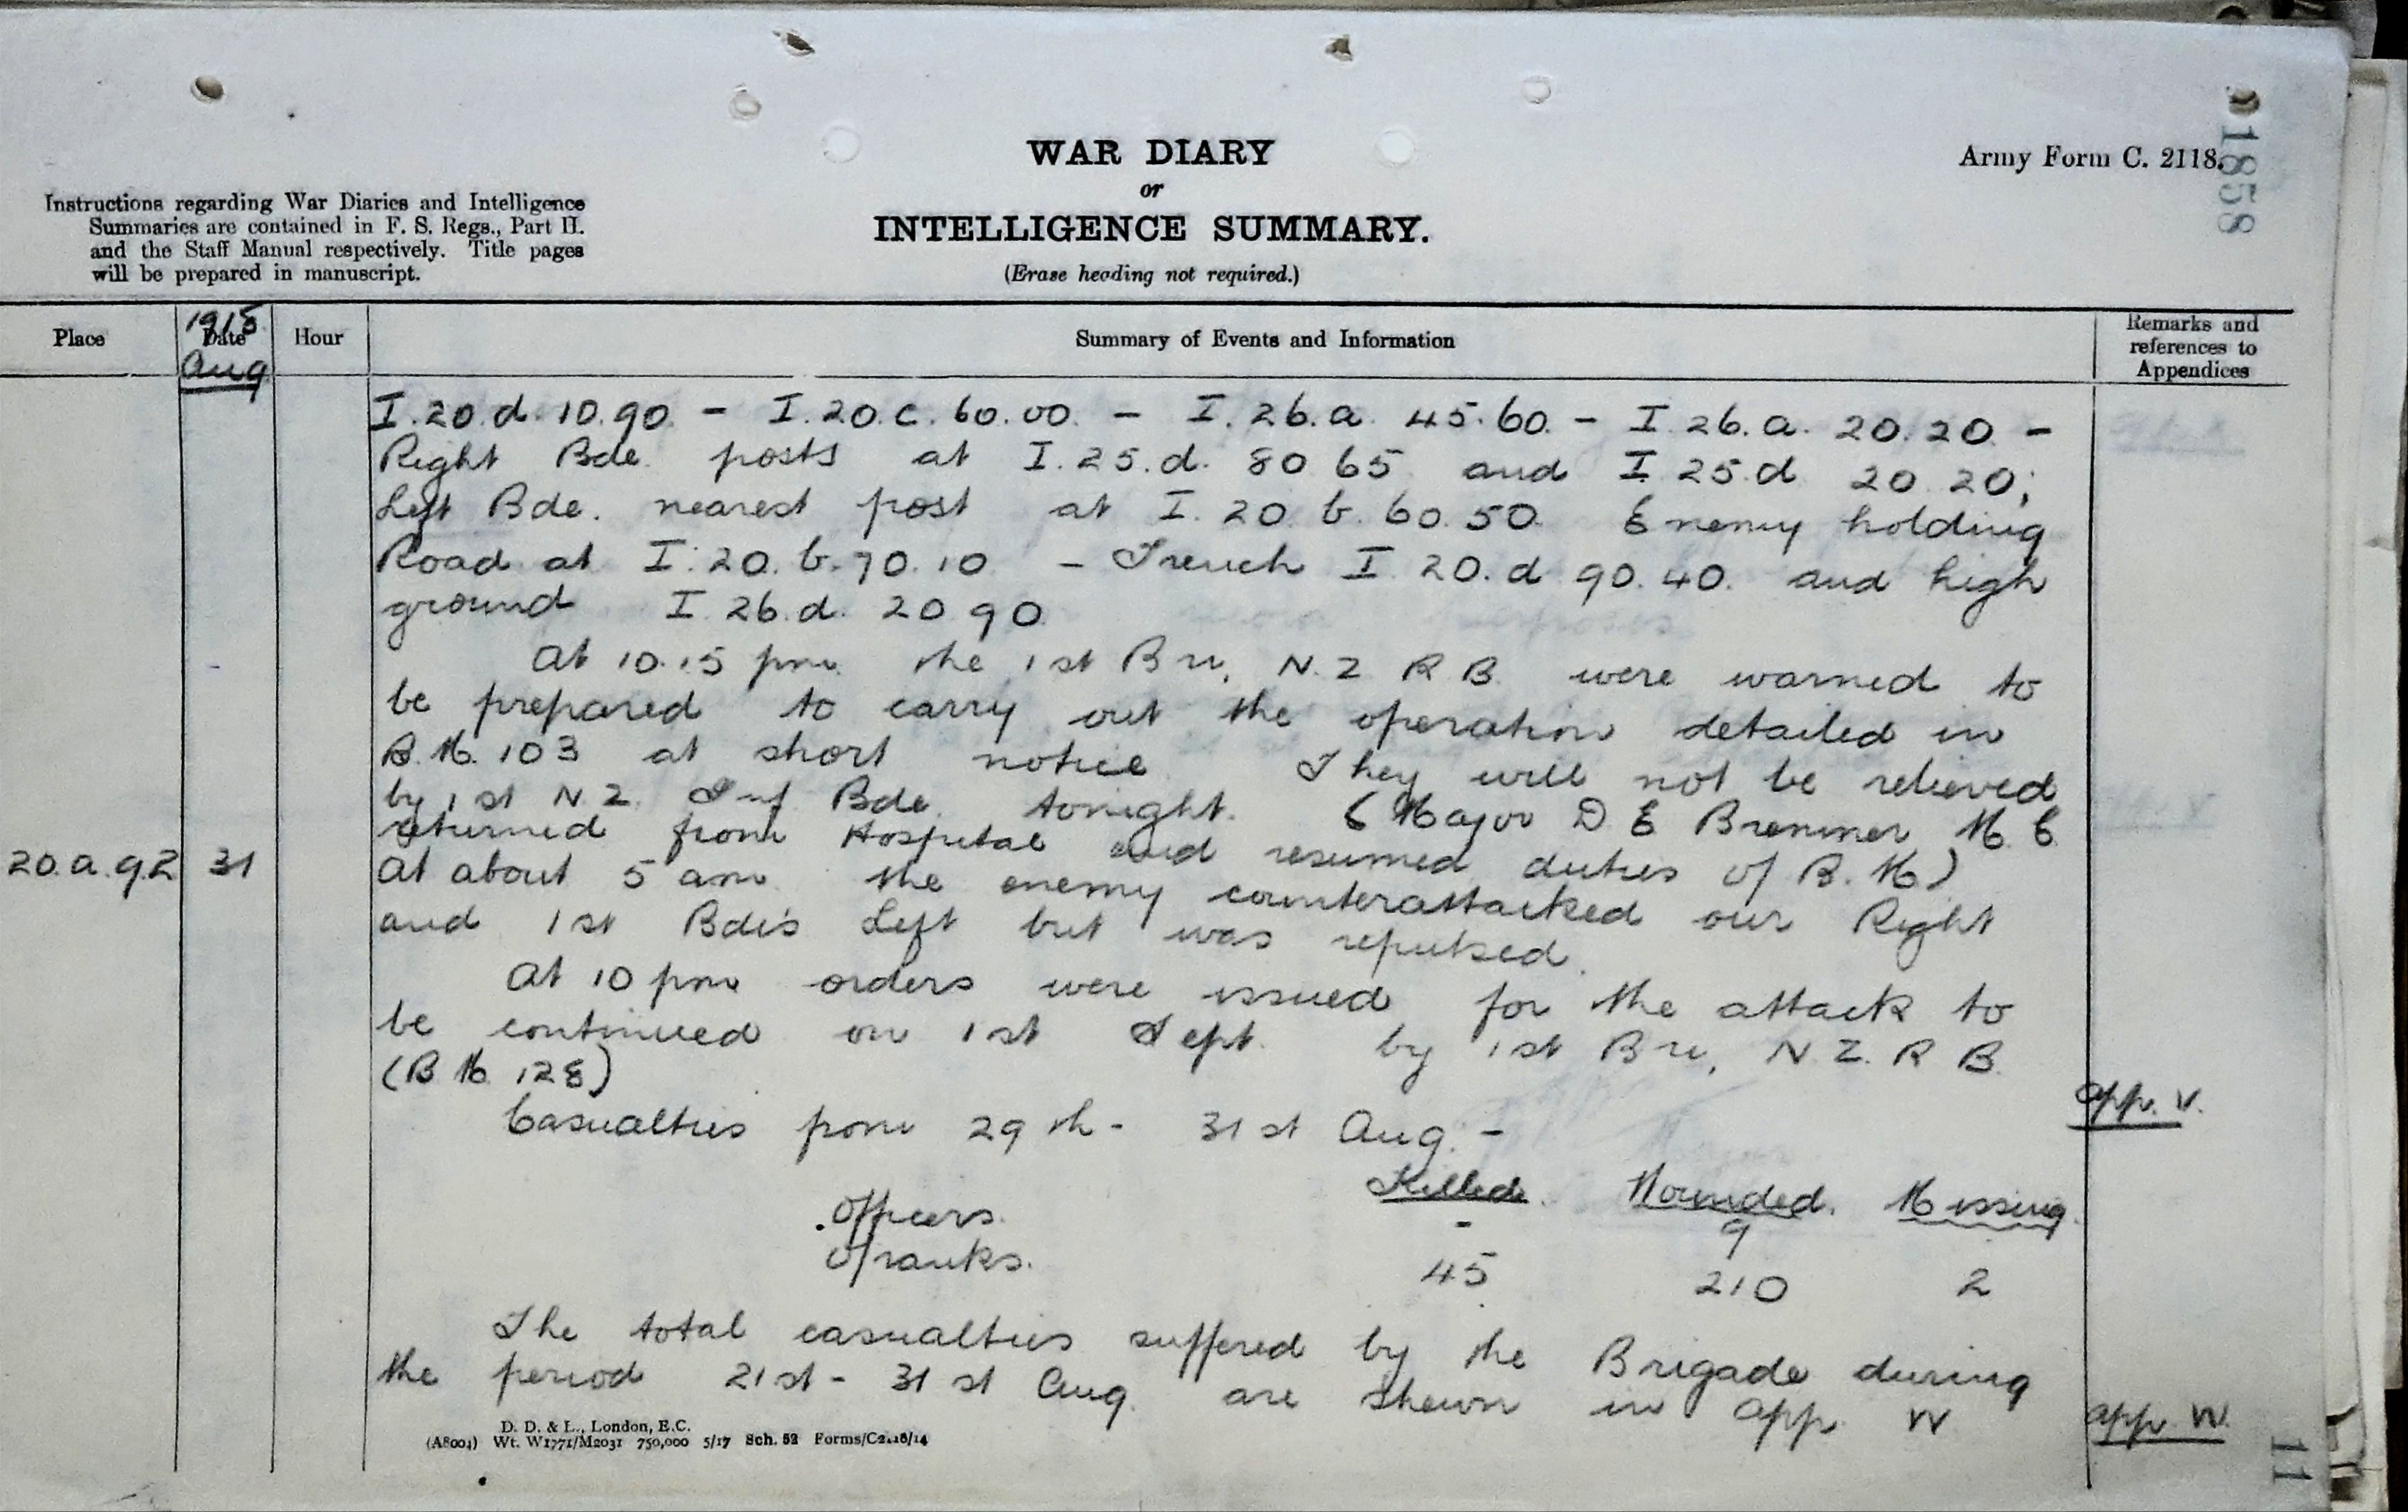 WAR DIARY
or
INTELLIGENCE SUMMARY.
(Erase heading not required.)
Army Form C. 2118.
1858
Instructions regarding War Diaries and Intelligence
Summaries are contained in F. S. Regs., Part II.
and the Staff Manual respectively. Title pages
will be prepared in manuscript.
Place
1918
Date
Aug
Hour
Summary of Events and Information
Remarks and
references to
Appendices
I.20.d.10.90 - I.20.c.60.00. - I.26.a.45.60. - I.26.a.20.20 -
Right Bde. posts at I.25.d.80 65 and I 25.d 20 20;
Left Bde. nearest post at I.20 b.60.50. Enemy holding
Road at I.20.b.70.10 - Trench I 20.d 90.40. and high
ground I 26.d. 20 90
At 10.15 pm. the 1st Bn, N.Z R B. were warned to
be prepared to carry out the operation detailed in
B.M. 103 at short notice They will not be relieved
by 1st N.Z. Inf Bde. tonight. (Major D E Bremner M C
returned from Hospital and resumed duties of B.M.)
20.a.9.2 31 At about 5 am the enemy counterattacked our Right
and 1st Bde's Left but was repulsed.
At 10 pm orders were issued for the attack to
be continued on 1st Sept. by 1st Bn, N.Z. R B.
(B M. 128)
app. V.
Casualties from 29th - 31st Aug. -
Killed. Wounded. Missing.
Officers. - 9
O/ranks. 45 210 2
The total casualties suffered by the Brigade during
the period 21st - 31st Aug. are shewn in app. W
app. W.
D. D. & L., London, E.C.
(A8004) Wt. W1771/M2031 750,000 5/17 Sch. 52 Forms/C2118/14
11